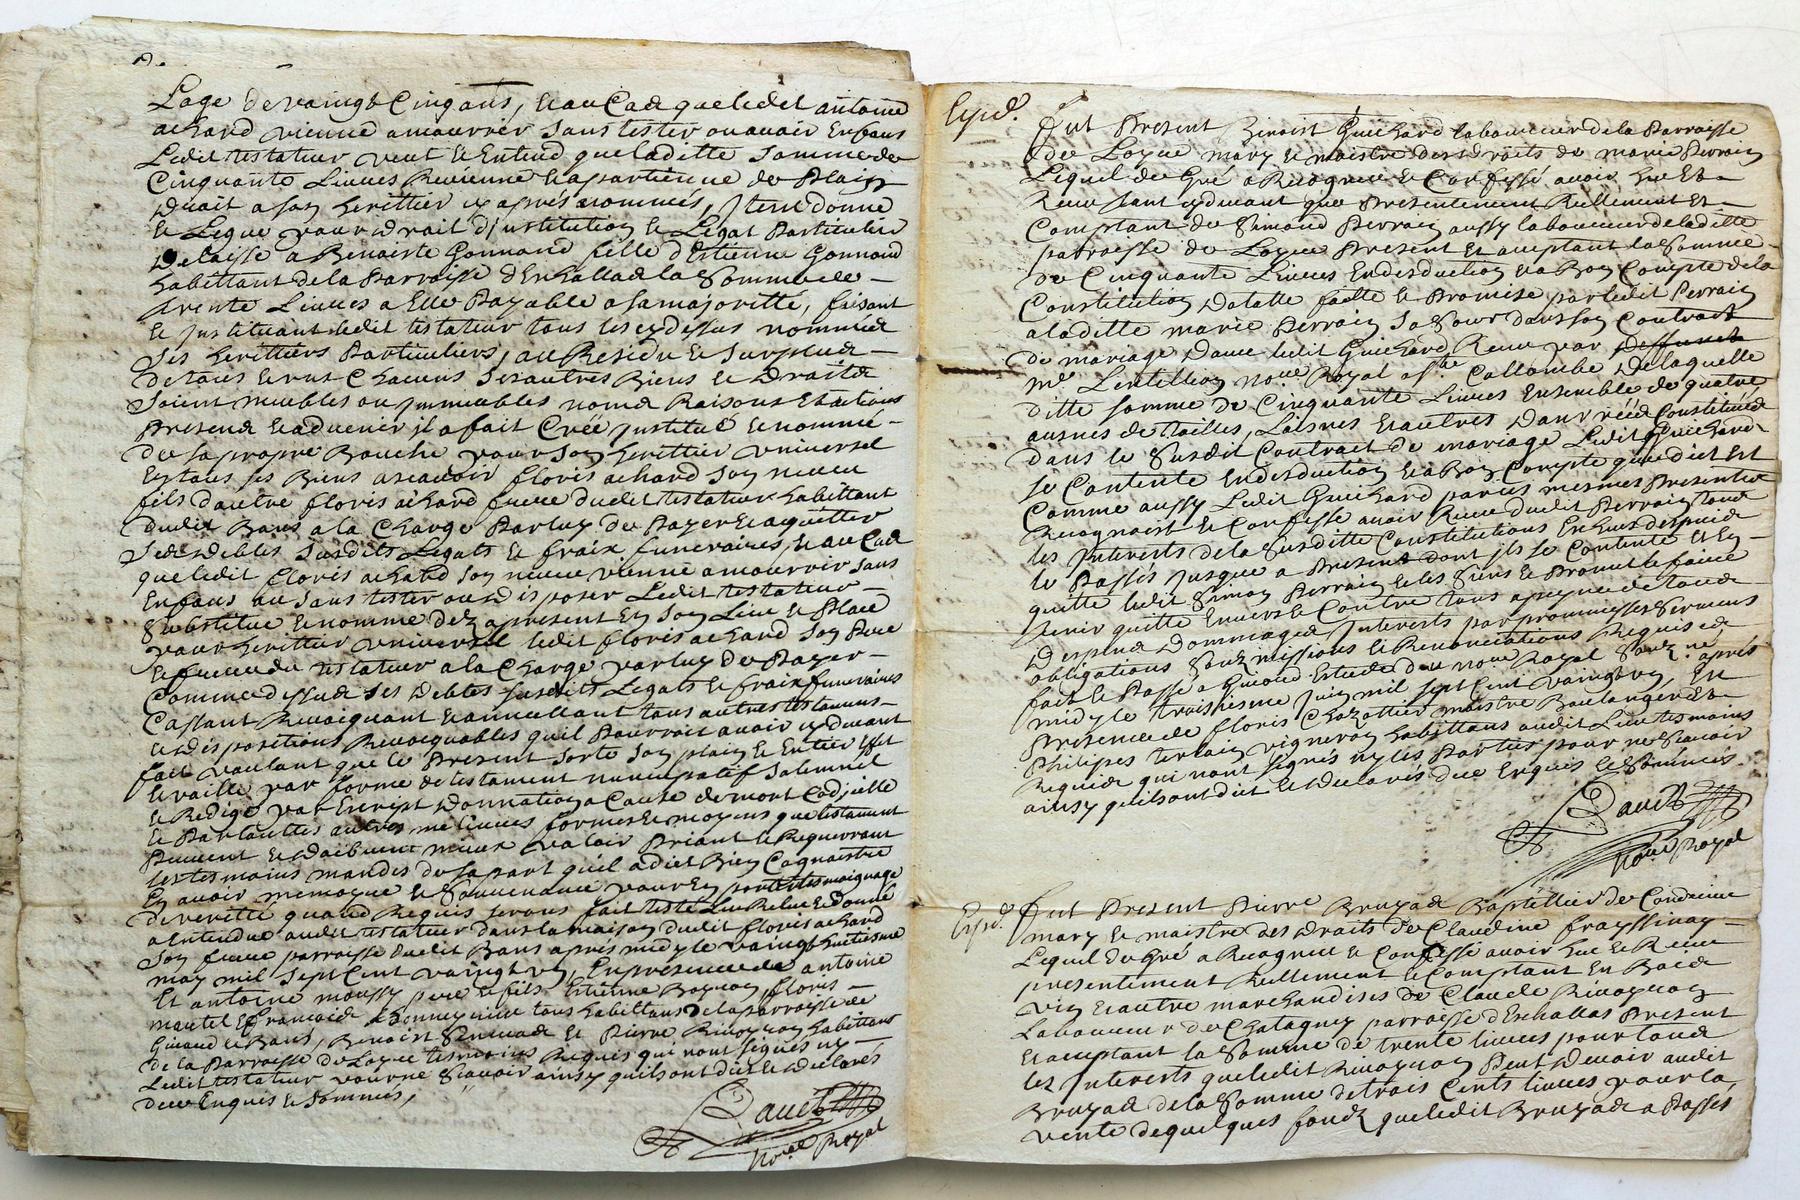 Lage de vaingt Cinq ans, et au Cas que ledit antoine
achard vienne a mourrir sans tester ou avoir Enfans
Ledit testateur veut et Entend que laditte somme de
Cinquante Livres Revienne et apartienne de Plain
droit a son herittier cy apres nommés, Item donne
et Legue pour droit d'Institution et Legat Particulier
delaisse a Benoiste Gonnand fille d'Estienne Gonnand
habittant de la Parroisse d'Enhallas la Somme de
trente Livres a Elle Payable a sa majoritté, faisant
et Instituant ledit testateur tous les cy dessus nommés
ses herittiers Particuliers, au Residu et surplus
de tous et uns Chacuns ses autres Biens et droits
soient meubles ou Immeubles noms Raisons Et actions
Present et advenir il a fait Créé Institué et nommé
de sa propre Bouche pour son herittier universel
En tous ses Biens ascavoir floris achard son neveu
fils d'autre floris achard frere dudit testateur habittant
dudit Bans a la Charge Par luy de Payer et aquitter
ses debtes susdits Legats et fraix funeraires, et au Cas
que ledit floris achard son neveu vienne a mourrir sans
Enfans ou sans tester ou disposer Ledit testateur
Substitue et nomme dez a present En son Lieu et Place
pour herittier universel ledit floris achard son Pere
et frere du testateur a la Charge par luy de Payer
Comme dessus ses debtes susdits Legats et fraix funeraires
Cassant Revoquant et annullant tous autres testamens
et dispositions Revocquables quil Pourroit avoir cy devant
fait voulant que le Present sorte son plain et Entier Effet
et vaille par forme de testament nuncupatif solemnel
et Redigé par Escript donnation a Cause de mort Codicille
et Par touttes autres meilleures formes et moyens que testament
Peuvent et doibvent mieux valoir Priant et Requerrant
les tesmoins mandés de sa part qu'il a dict Bien Cognoistre
En avoir memoyre et Souvenance pour En porter tesmoignage
de veritté quand Requis seront fait testé Leu Releu et donné
a Entendre audit testateur dans la maison dudit floris achard
son frere parroisse dudit Bans apres midy le vaingt huitiesme
may mil sept Cent vaingt un En presence de antoine
Et antoine moussy pere et fils Estienne floris
mantel Et francois tous habittans de la parroisse de
Givord et Bans, Benoist et Pierre Rivoyron habittans
de la Parroisse de Loyre tesmoins Requis qui n'ont signés ny
Ledit testateur pour ne Scavoir ainsy quils ont dict et declarés
de ce Enquis et sommés,
Davet
No.re Royal
Exp.é
Fut Present Benoist Guichard laboureur de la Parroisse
de Loyre mary et maistre des droits de marie Perrain
Lequel de Gré a Recognu et Confessé avoir heu Et
Receu tant cydevant que Presentement Reellement Et
Comptant de Simond Perrain aussy laboureur de laditte
parroisse de Loyre Present Et aceptant la Somme
de Cinquante Livres En deduction et a Bon Compte de la
Constitution datalle faitte et Promise par ledit Perrain
a laditte marie Perrain sa Soeur dans son Contract
de mariage avec ledit Guichard Receu par deffunct
me Lentillon no.re Royal a St.e Collombe de laquelle
ditte somme de Cinquante Livres Ensemble de quatre
ausnes de toilles, Laisnes et autres danrréés Constituéés
dans le Susdit Contract de mariage Ledit Guichard
se Contente En deduction et a Bon Compte que dict Est
Comme aussy Ledit Guichard par ces mesmes Presentes
Recognoist et Confesse avoir Receu dudit Perrain tous
les Interests de la Susditte Constitutions Escheus despuis
le Passés Jusques a Present dont ils se Contente Et En
quitte ledit Simon Perrain et les siens et Promet le faire
tenir quitte Envers et Contre tous a peyne de tous
despens dommages Interests par prommesses Sermens
obligations Soubzmissions et Renonciations Requises
fait et Passé a Givord Estude du no.re Royal Soubz.né apres
midy le troisiesme Juin mil sept Cent vaingt un, En
Presence de floris Chazottier maistre Boulanger Et
Philipes terlain vigneron habittans audit Lieu tesmoins
Requis qui n'ont signés ny les Parties pour ne Scavoir
ainsy quils ont dict et declarés de ce Enquis et Sommés
Davet
No.re Royal
Exp.é
Fut Present Pierre Bruyas Baptellier de Condrieu
mary et maistre des droits de Claudine frayssinay
Lequel de Gré a Recognu et Confessé avoir heu et Receu
presentement Reellement et Comptant En Bois
vin et autre marchandises de Claude Rivoyron
Laboureur de Chatagny parroisse d'Eschallas Present
Et aceptant la Somme de trente livres pour tous
les Interests que ledit Rivoyron Peut devoir audit
Bruyas de la Somme de trois Cents livres pour la
vente de quelques fondz que ledit Bruyas a Passés